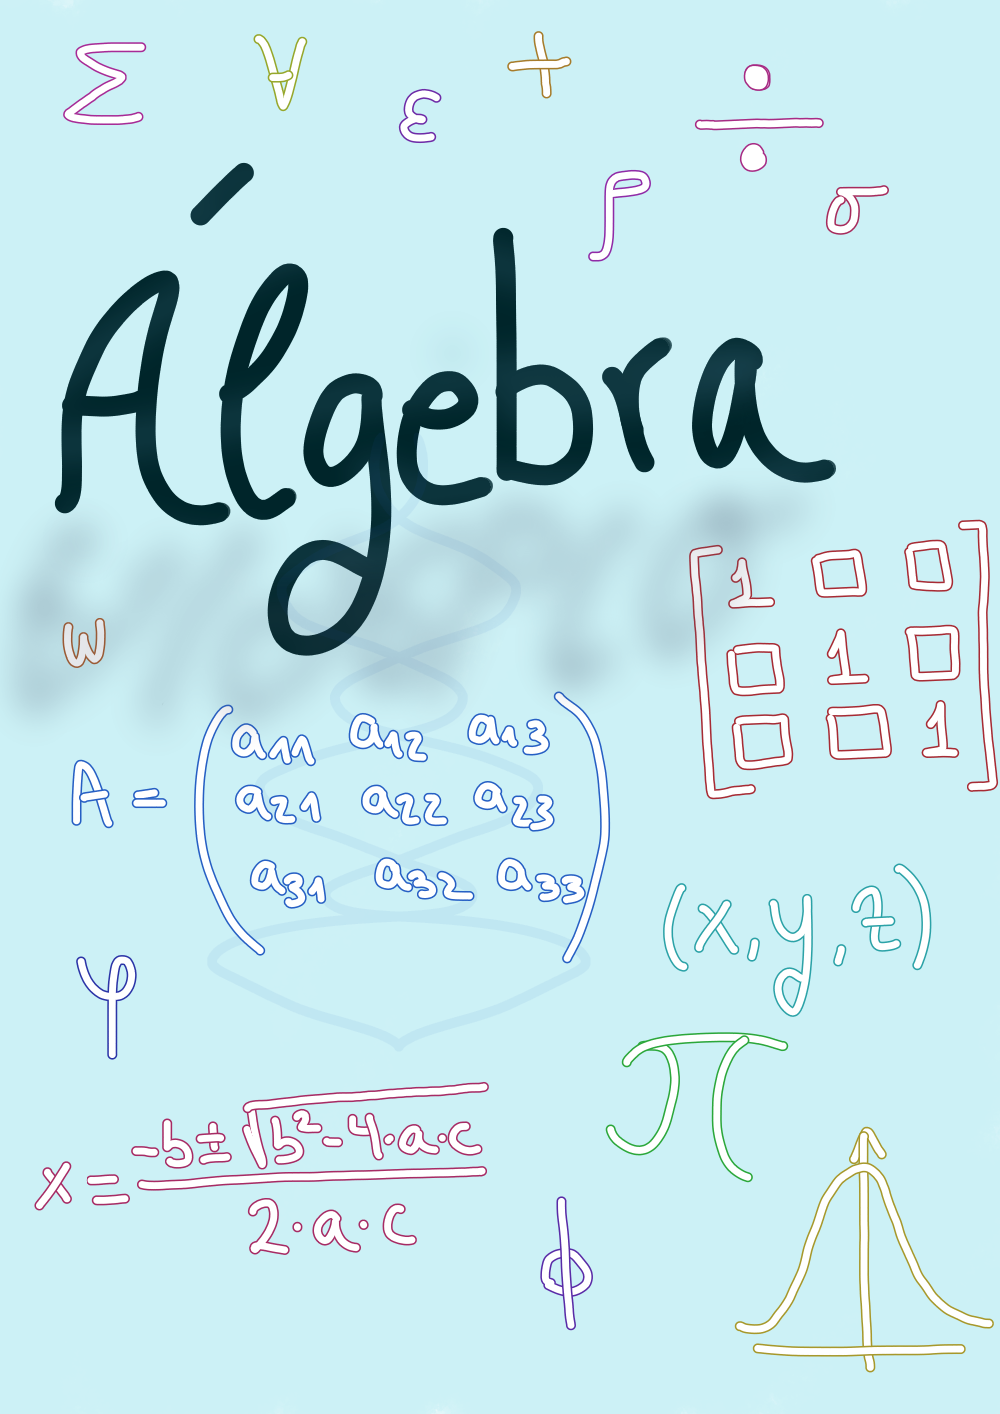 Σ ∀ ε + ÷
ρ σ
Álgebra
w
[1 □ □
□ 1 □
□ □ 1]
A = (a11 a12 a13
a21 a22 a23
a31 a32 a33)
(x, y, z)
φ
π
x = -b ± √b²-4·a·c
2·a·c
ϕ